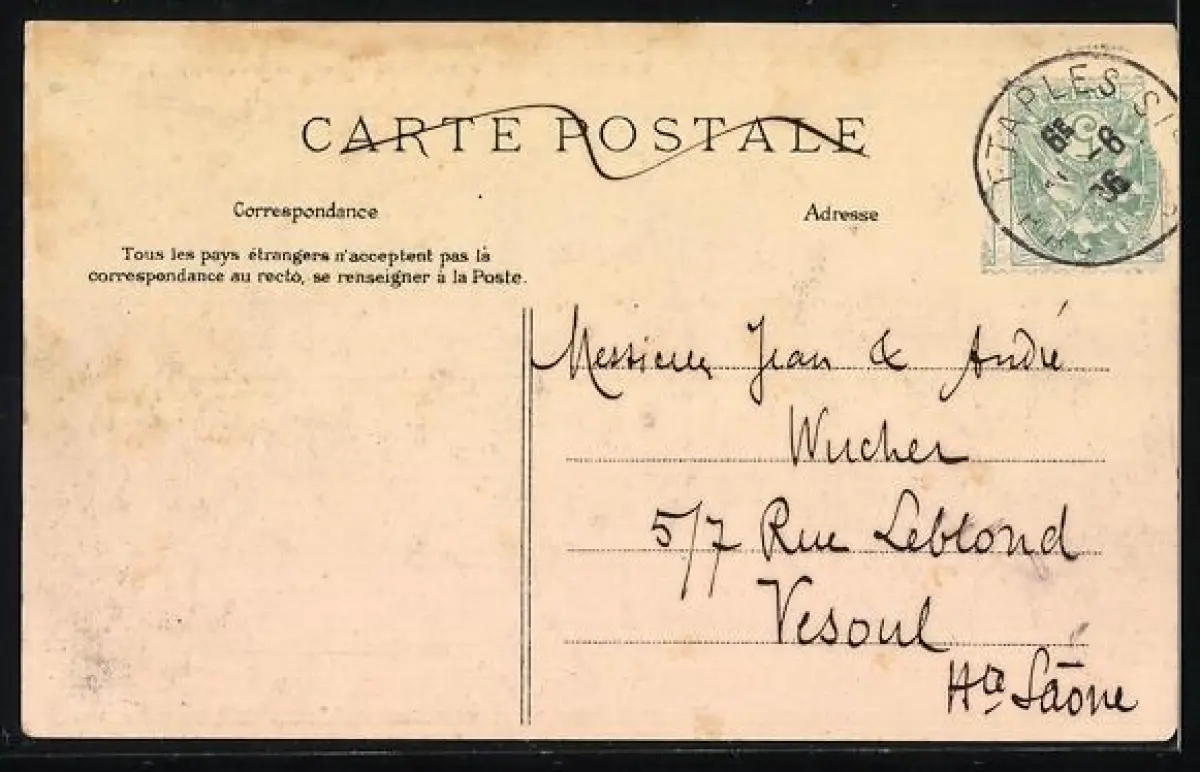 CARTE POSTALE
Correspondance
Adresse
Tous les pays étrangers n'acceptent pas la
correspondance au recto, se renseigner à la Poste.
ETAPLES
-8
06
5
Messieurs Jean & André
Wucher
5/7 Rue Leblond
Vesoul
Hte Saône